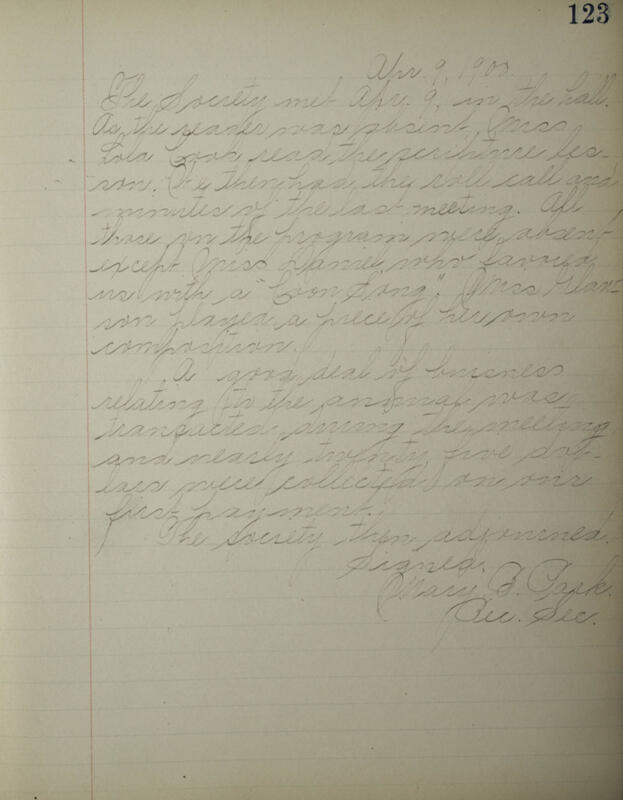 123
Apr. 9, 190
The Society met Apr. 9, in the hall.
As the reader was absent, Miss
Lola Cook read the scripture les-
son. We then had the roll call and
minutes of the last meeting. All
those on the program were absent
except Miss who favored
us with a "Coon Song". Miss
son played a piece of her own
composition.
A good deal of buisness
relating to the annual was
transacted during the meeting
and nearly twenty five dol-
lars were collected on our
first payment.
The Society then adjourned.
Signed.
Mary B. Park.
Rec. Sec.